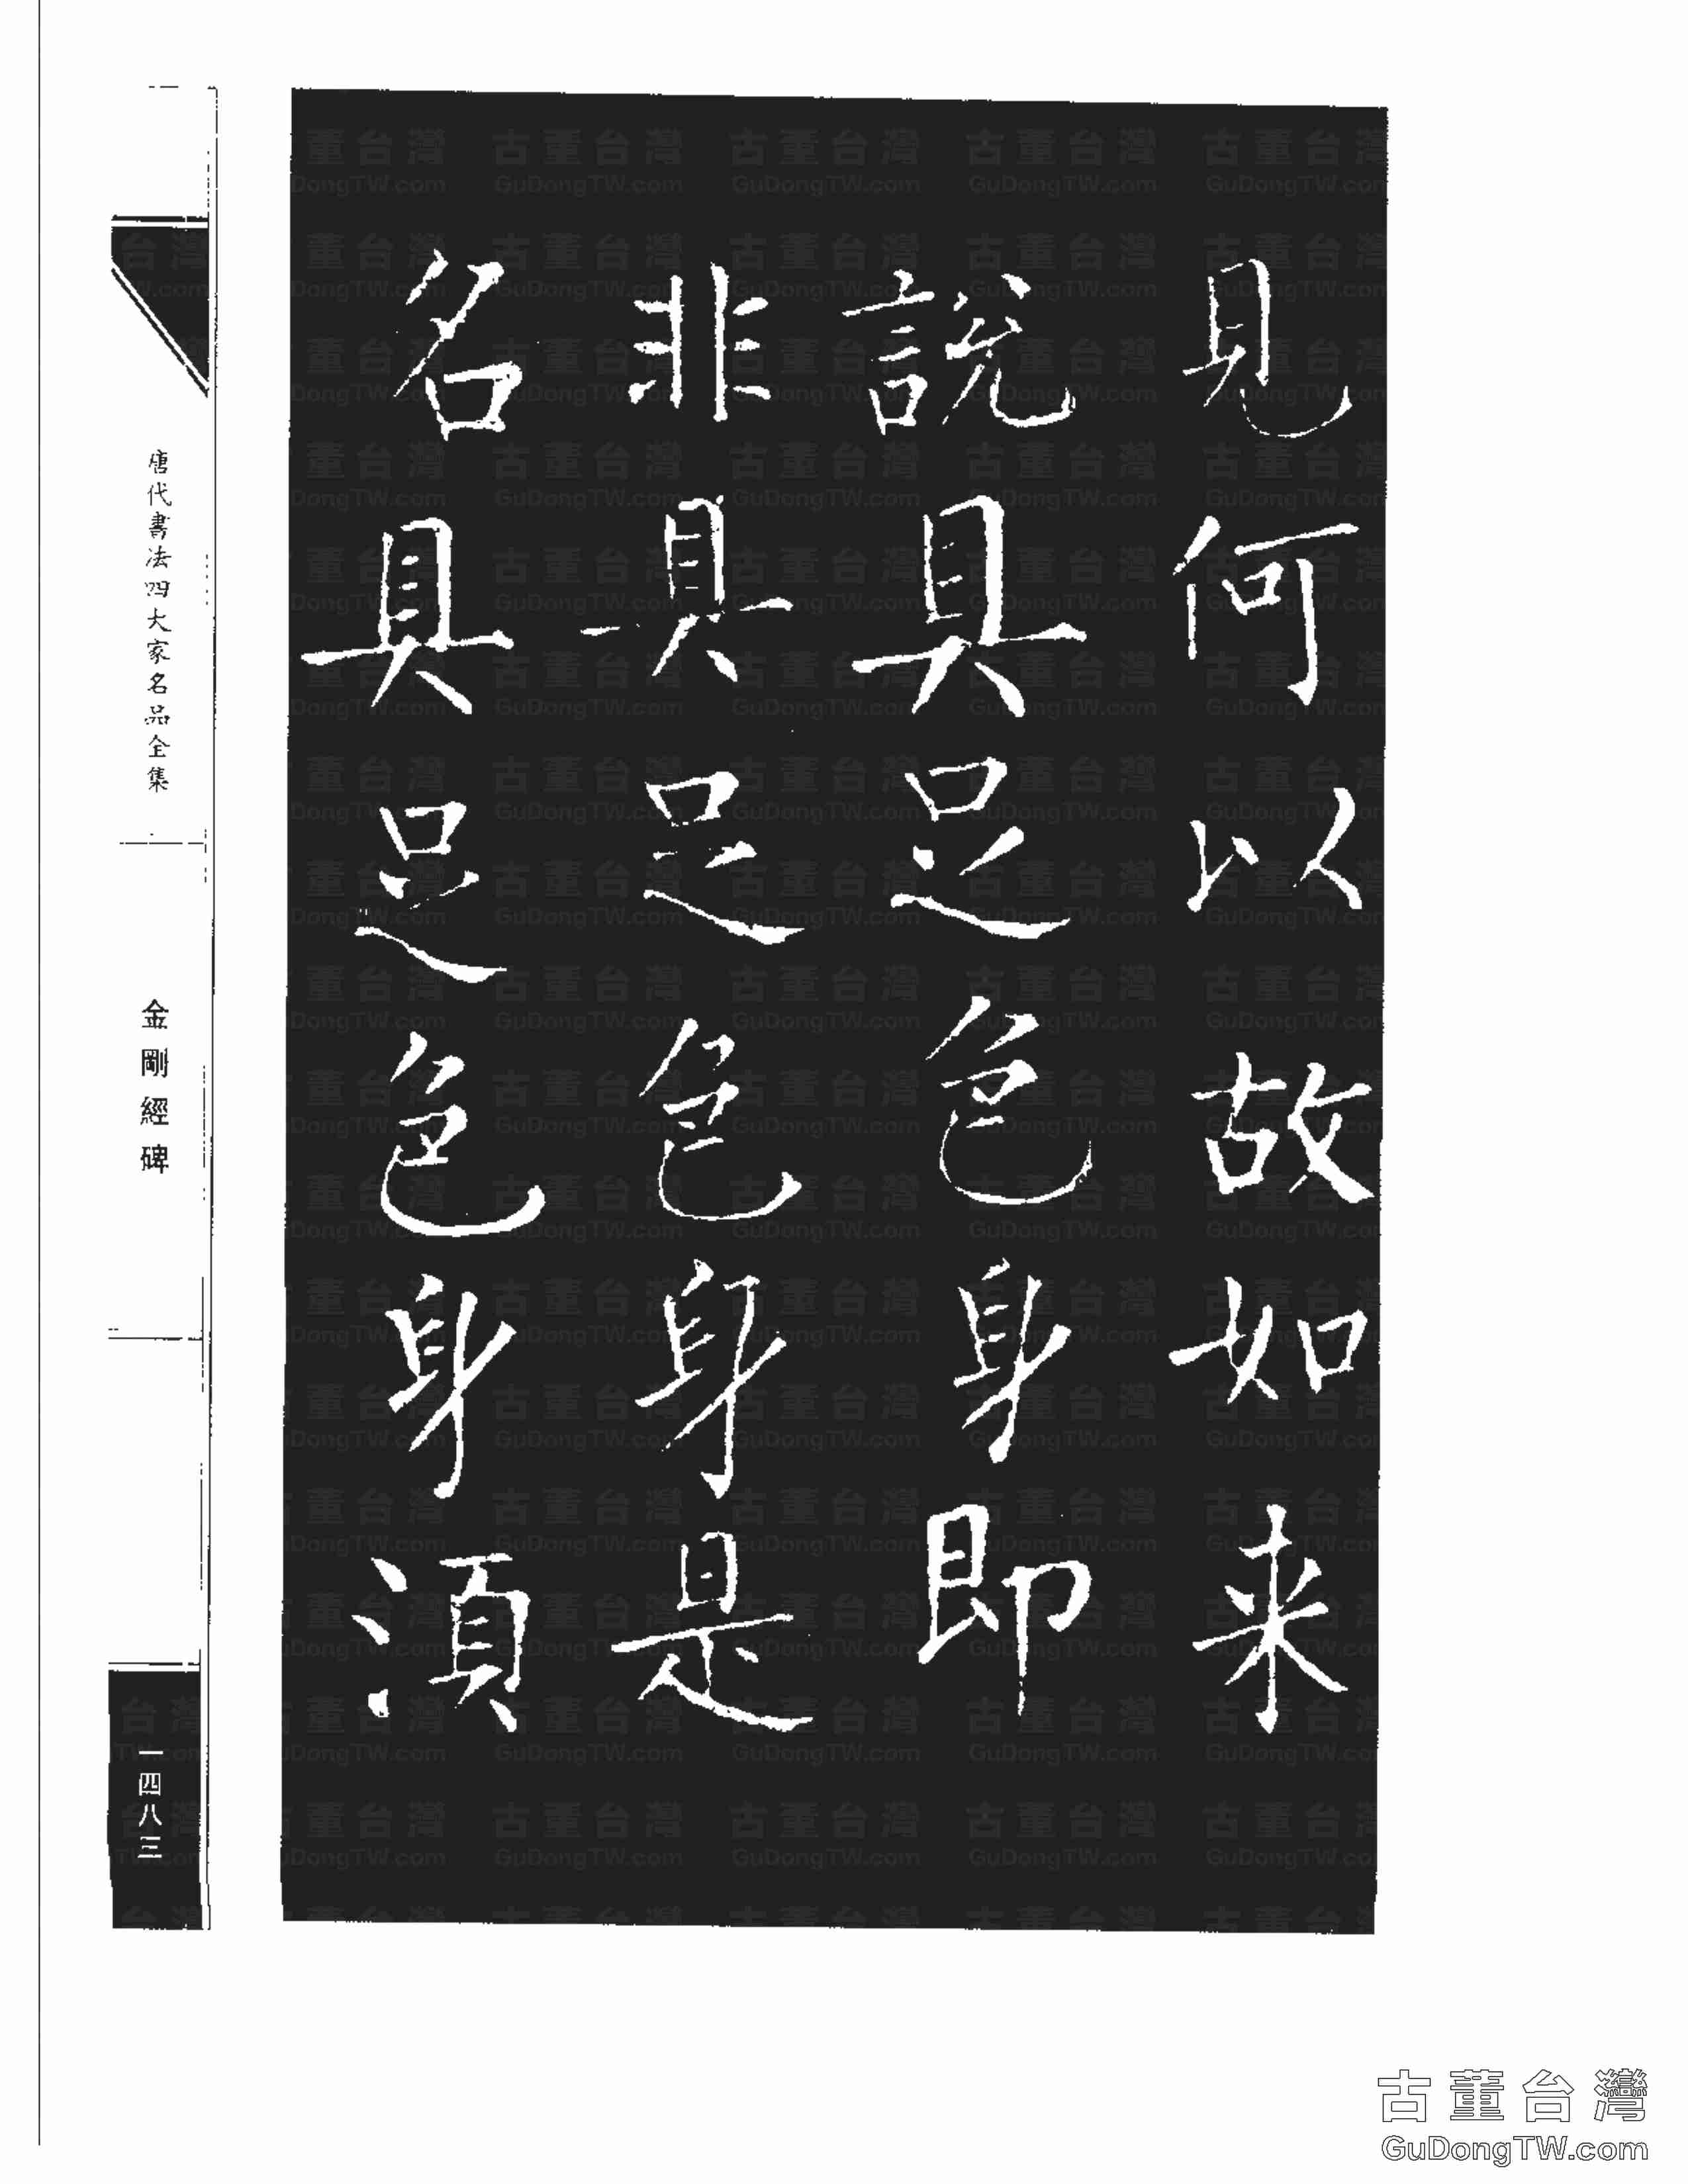 見何以故如来
說具足色身即
非具足色身是
名具足色身須
唐代書法四大家名品全集
金剛經碑
一四八三
古董台灣
GuDongTW.com